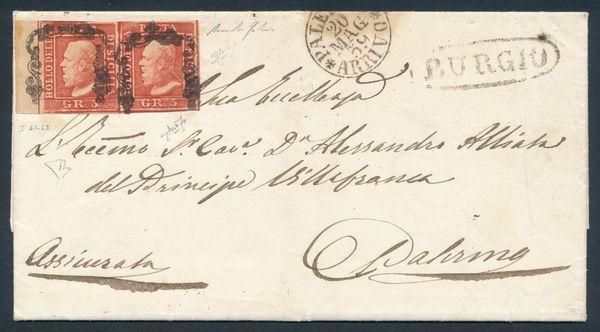 BOLLO DELLA POSTA DI SICILIA
GR. 5
BOLLO DELLA POSTA DI SICILIA
GR. 5
PALERMO
20
MAG
59
*ARRIVO*
BURGIO
Sua Eccellenza
L'Eccmo Sr. Cavr. Dn Alessandro Alliata
del Principe Villafranca
Assicurata
Palermo